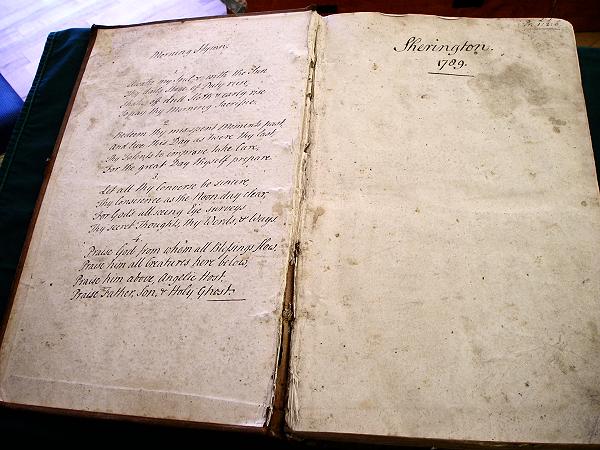 Morning Hymn.
Awake my Soul, & with the Sun
Thy daily Stage of Duty run,
Shake off dull Sloth & early rise
To pay thy Morning Sacrifice.
2
Redeem thy mis-spent Moments past,
And live this Day as twere thy last,
Thy Talents to improve take Care,
For the great Day thyself prepare.
3
Let all thy Converse be sincere,
Thy Conscience as the Noon day clear,
For God's all seeing Eye surveys
Thy Secret Thoughts, thy Words, & Ways
4
Praise God from whom all Blessings flow,
Praise him all Creatures here below,
Praise him above, Angelic Host,
Praise Father, Son, & Holy Ghost.
Sherington.
1789.